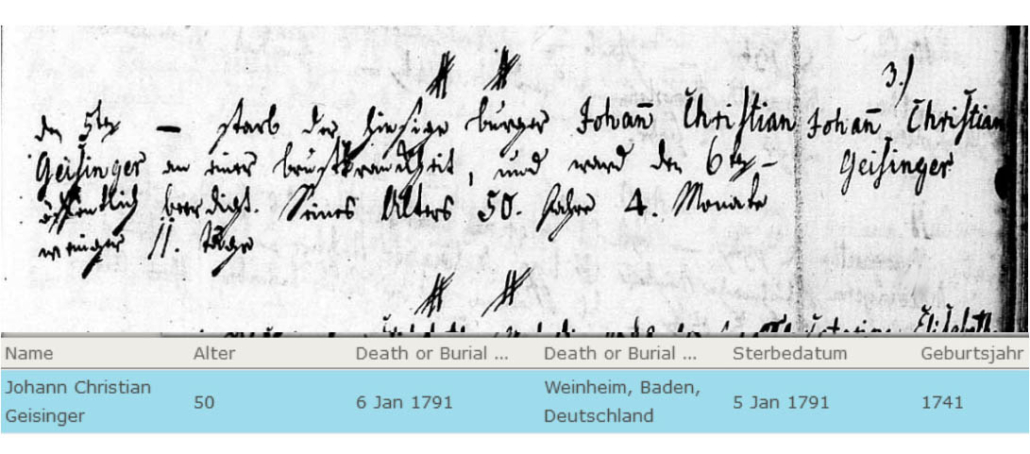 3.)
den 5ten — starb der hiesige burger Johan̅ Christian
Geisinger an einer brustkranckheit, und ward den 6ten –
öffentlich beerdigt. Seines Alters 50. Jahre 4. Monate
weniger 11. Tage
Johan̅ Christian
Geisinger
Elisabeth
Name Alter Death or Burial ... Death or Burial ... Sterbedatum Geburtsjahr
Johann Christian
Geisinger
50
6 Jan 1791
Weinheim, Baden,
Deutschland
5 Jan 1791
1741